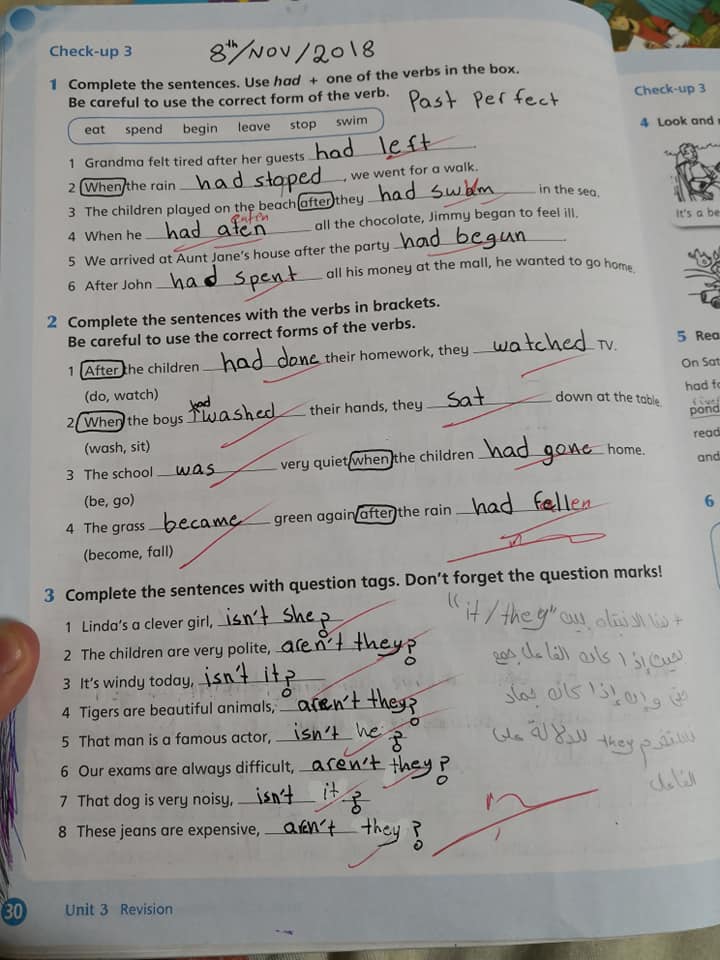 Check-up 3
8th/NOV/2018
1 Complete the sentences. Use had + one of the verbs in the box.
Be careful to use the correct form of the verb.
Past Perfect
eat spend begin leave stop swim
1 Grandma felt tired after her guests had left.
2 When the rain had stoped, we went for a walk.
3 The children played on the beach after they had swum in the sea.
eaten
4 When he had aten all the chocolate, Jimmy began to feel ill.
5 We arrived at Aunt Jane's house after the party had begun.
6 After John had spent all his money at the mall, he wanted to go home.
2 Complete the sentences with the verbs in brackets.
Be careful to use the correct forms of the verbs.
1 After the children had done their homework, they watched TV.
(do, watch)
2 When the boys had washed their hands, they sat down at the table.
(wash, sit)
3 The school was very quiet when the children had gone home.
(be, go)
4 The grass became green again after the rain had fallen
(become, fall)
3 Complete the sentences with question tags. Don't forget the question marks!
1 Linda's a clever girl, isn't she?
2 The children are very polite, aren't they?
3 It's windy today, isn't it?
4 Tigers are beautiful animals, aren't they?
5 That man is a famous actor, isn't he?
6 Our exams are always difficult, aren't they?
7 That dog is very noisy, isn't it?
8 These jeans are expensive, aren't they?
الانتباه بين "it/they"
إذا كان الفاعل جمع
إذا كان جماد
نستخدم they للدلالة على
الفاعل
30 Unit 3 Revision
Check-up 3
4 Look and
It's a be
5 Rea
On Sat
had fo
pond
read
and
6